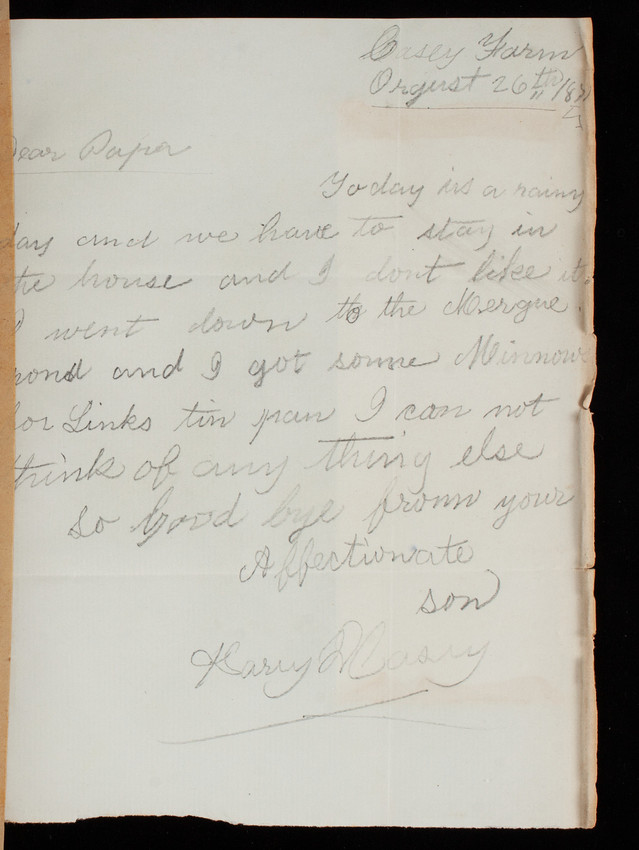 Casey Farm
Orgust 26th /187
Dear Paper
To day is a rainy
day and we have to stay in
the house and I dont like it.
I went down to the Mergue
pond and I got some Minnows
for Links tin pan I can not
think of any thing else
so good bye from your
Affectionate
son
Harry